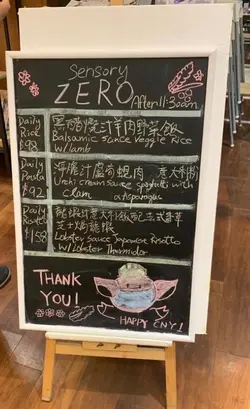 Sensory
ZERO
After 11:30am
Daily
Rice
$98
黑醋燒汁羊肉野菜飯
Balsamic sauce Veggie Rice
w/lamb
Daily
Pasta
$92
海膽汁蘆筍蜆肉意大利粉
Unchi cream sauce spaghetti with
clam asparagus
Daily
Risotto
$158
龍蝦汁意大利飯配法式香草
芝士焗龍蝦
Lobster sauce Japanese Risotto
w/ Lobster Thermidor
THANK
YOU!
HAPPY CNY!